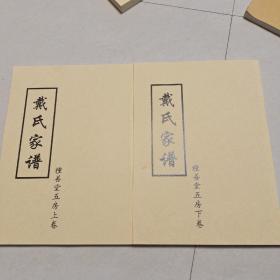 戴氏家谱
种善堂五房上卷
戴氏家谱
种善堂五房下卷